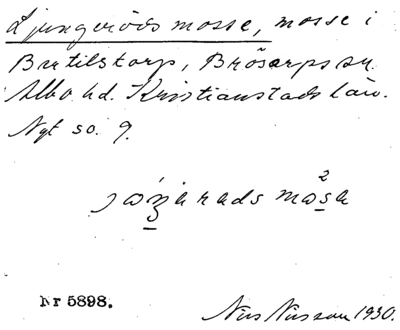 Ljungviods mosse, mosse i
Bertilstorp, Brösarps sn.
Albo hd. Kristianstads län.
Nyt so. 9.
mosa
Nr 5898.
Nils Nilsson 1930.